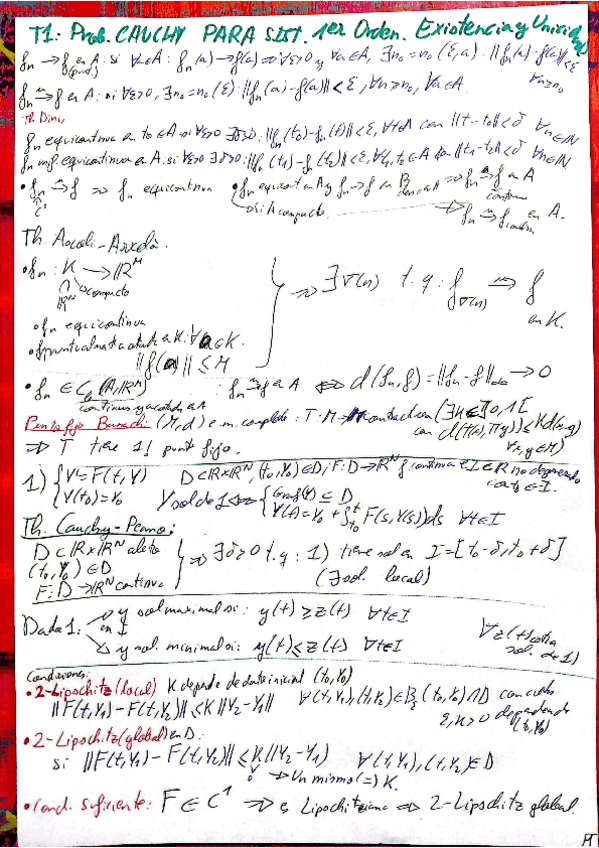 T1: Prob. CAUCHY PARA SIST. 1er Orden. Existencia y Unicidad
fn → f en A (punt.) si ∀a∈A: fn(a) → f(a) ⇒ ∀ε>0 y ∀a∈A, ∃n₀=n₀(ε,a): ||fn(a)-f(a)||<ε ∀n≥n₀
fn ⇉ f en A: si ∀ε>0, ∃n₀=n₀(ε): ||fn(a)-f(a)||<ε, ∀n>n₀, ∀a∈A.
Th Dini,
fn equicontinua en t₀∈A si ∀ε>0 ∃δ>0: ||fn(t₀)-fn(t)||<ε, ∀t∈A con ||t-t₀||<δ ∀n∈ℕ
fn unif. equicontinua en A: si ∀ε>0 ∃δ>0: ||fn(t₁)-fn(t₂)||<ε, ∀t₁,t₂∈A con ||t₁-t₂||<δ ∀n∈ℕ
• fn ⇉ f ⇒ fn equicontinua • fn equicont en A y fn → f en B denso en A ⇒ fn → f en A
C continua
→ si A compacto ⇒ fn ⇉ f en A.
Th. Ascoli-Arzelà.
• fn: K → ℝᴹ
∩ → compacto
ℝᴺ
• fn equicontinua
• f puntualmente acotada en K: ∀a∈K.
||f(a)|| ≤ M
⇒ ∃σ(n) t.q: fσ(n) ⇉ f
en K.
• fn ∈ C_b(A,ℝᴹ) : fn ⇉ f en A ⇔ d(fn,f) = ||fn-f||∞ → 0
continuas y acotadas en A
Punto fijo Banach: (M,d) e.m. completo: T: M→M contractiva (∃K∈]0,1[
con d(T(x),T(y)) ≤ K d(x,y)
∀x,y∈M)
⇒ T tiene 1! punto fijo.
1) { Y'=F(t,Y) D⊂ℝxℝᴺ, (t₀,Y₀)∈D, F: D→ℝᴺ continua e I⊂ℝ no degenerado
Y(t₀)=Y₀ con t₀∈I.
Y sol de 1 ⇔ { Graf(Y) ⊆ D
Y(t) = Y₀ + ∫ₜ₀ᵗ F(s,Y(s))ds ∀t∈I
Th. Cauchy-Peano:
D⊂ℝxℝᴺ abierto
(t₀,Y₀)∈D
F: D→ℝᴺ continua
⇒ ∃δ>0 t.q: 1) tiene sol en I=[t₀-δ,t₀+δ]
(∃ sol. local)
Dada 1: en I
→ y sol maximal si: y(t) ≥ z(t) ∀t∈I
→ y sol. minimal si: y(t) ≤ z(t) ∀t∈I
∀z(t) otra
sol. de 1)
Condiciones:
• 2-Lipschitz (local) K depende de dato inicial (t₀,Y₀)
||F(t,Y₁)-F(t,Y₂)|| ≤ K ||Y₂-Y₁|| ∀(t,Y₁),(t,Y₂)∈B_ε(t₀,Y₀)∩D con
ε,K>0 dependiendo
(t₀,Y₀)
• 2-Lipschitz (global) en D:
si ||F(t,Y₁)-F(t,Y₂)|| ≤ K ||Y₂-Y₁|| ∀(t,Y₁),(t,Y₂)∈D
→ Un mismo (=) K.
• Cond. suficiente: F∈C¹ ⇒ es Lipschitziana ⇒ 2-Lipschitz global.